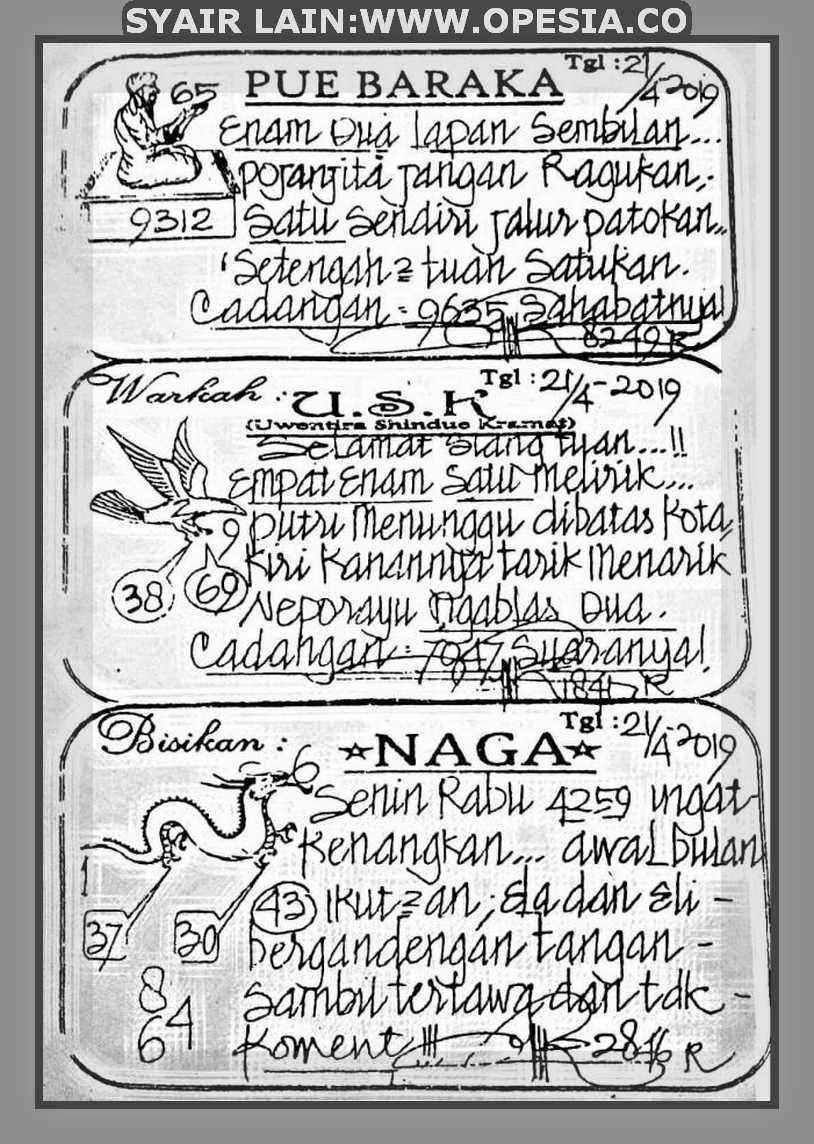 SYAIR LAIN:WWW.OPESIA.CO
Tgl : 21/4-2019
65 PUE BARAKA
Enam Dua lapan Sembilan...
poranjita jangan Ragukan,.
9312 Satu Sendiri jalur patokan..
'Setengah2 tuan Satukan.
Cadangan : 9635 Sahabatnya!
8249 R
Warkah : U.S.K Tgl : 21/4-2019
(Uwentira Shindue Kramat)
Selamat Siang tuan...!!
Empat Enam Satu Melirik...
9 putri Menunggu dibatas Kota,
38 69 Kiri Kanannya tarik Menarik
Neporayu Ngablas Dua.
Cadangan : 7947 Suaranya!
R
Bisikan : ☆NAGA☆ Tgl : 21/4-2019
6
Senin Rabu 4259 ingat-
Kenangkan... awal bulan
1
43 Ikut2an, Ela dan Eli -
37 30 bergandengan tangan -
8 4 Sambil tertawa dan tdk -
6 Koment !!!
R